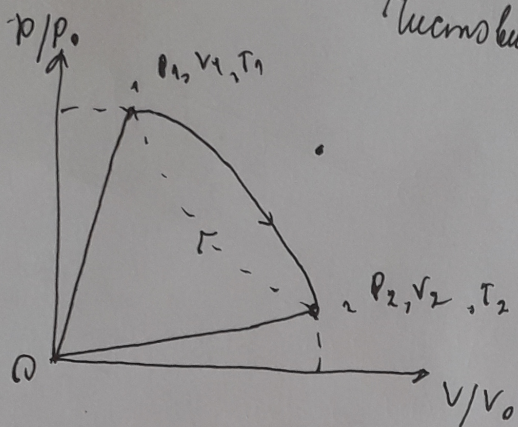 Чистови
p/p₀
1 P₁, V₁, T₁
Г
2 P₂, V₂, T₂
0
V/V₀